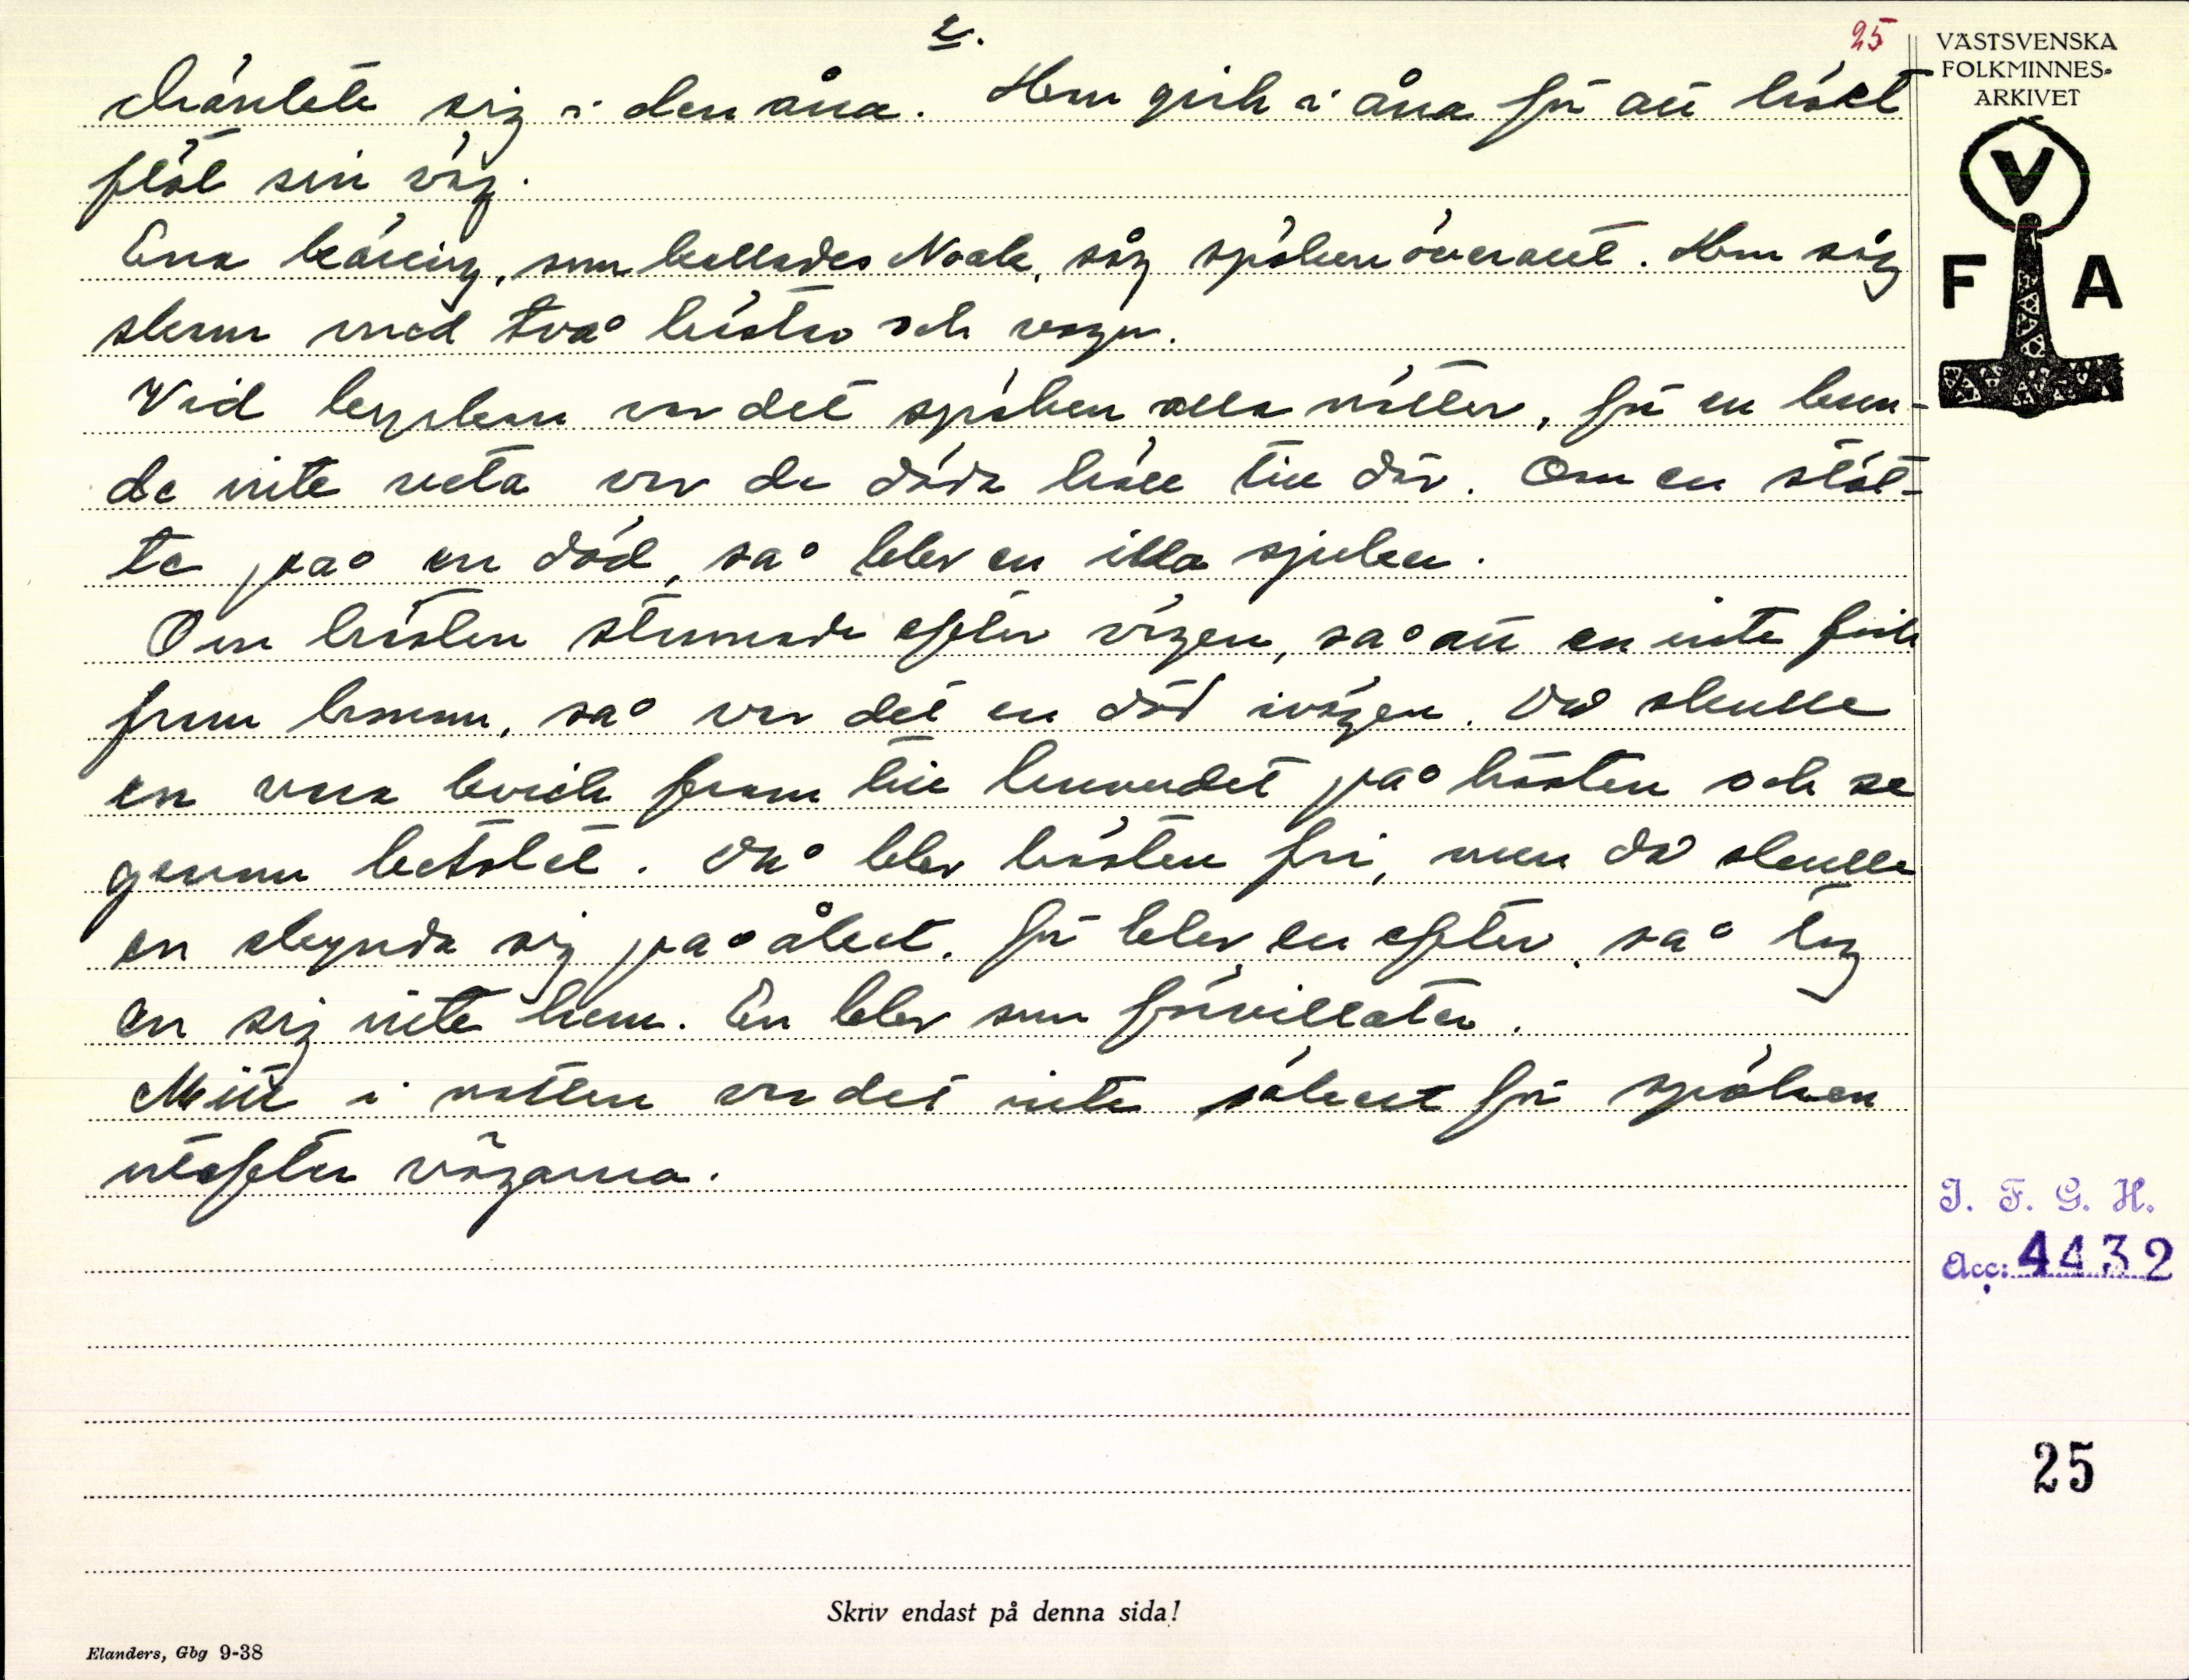 2.
25
dränkte sig i den åna. Hon gick i åna för att håét
flöt sin väg.
Ena käring, som kallades Noak, såg spöken överallt. Hon såg
skam med två hästar och vagn.
Vid kyrkan var det spöken alla nätter, för en kun-
de inte veta var de döda höll till där. Om en stöt-
te på en död, så blev en illa sjuker.
Om hästen stannade efter vägen, så att en inte fick
fram honom, så var det en död ivägen. Då skulle
en vara kvick fram till huvudet på hästen och se
genom betslet. Då blev hästen fri, men då skulle
en skynda sig på åket. För blev en efter, så tog
en sig inte hem. En blev som förvillater.
Mitt i natten var det inte säkert för spöken
utefter vägarna.
VÄSTSVENSKA
FOLKMINNES-
ARKIVET
V
F A
I. F. G. H.
Acc: 4432
25
Skriv endast på denna sida!
Elanders, Gbg 9-38